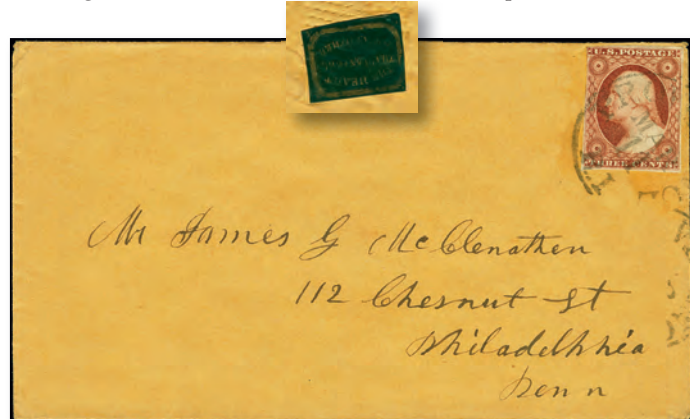 U.S. POSTAGE
THREE CENTS
Mr James G McClenathen
112 Chesnut St
Philadelphia
Penn